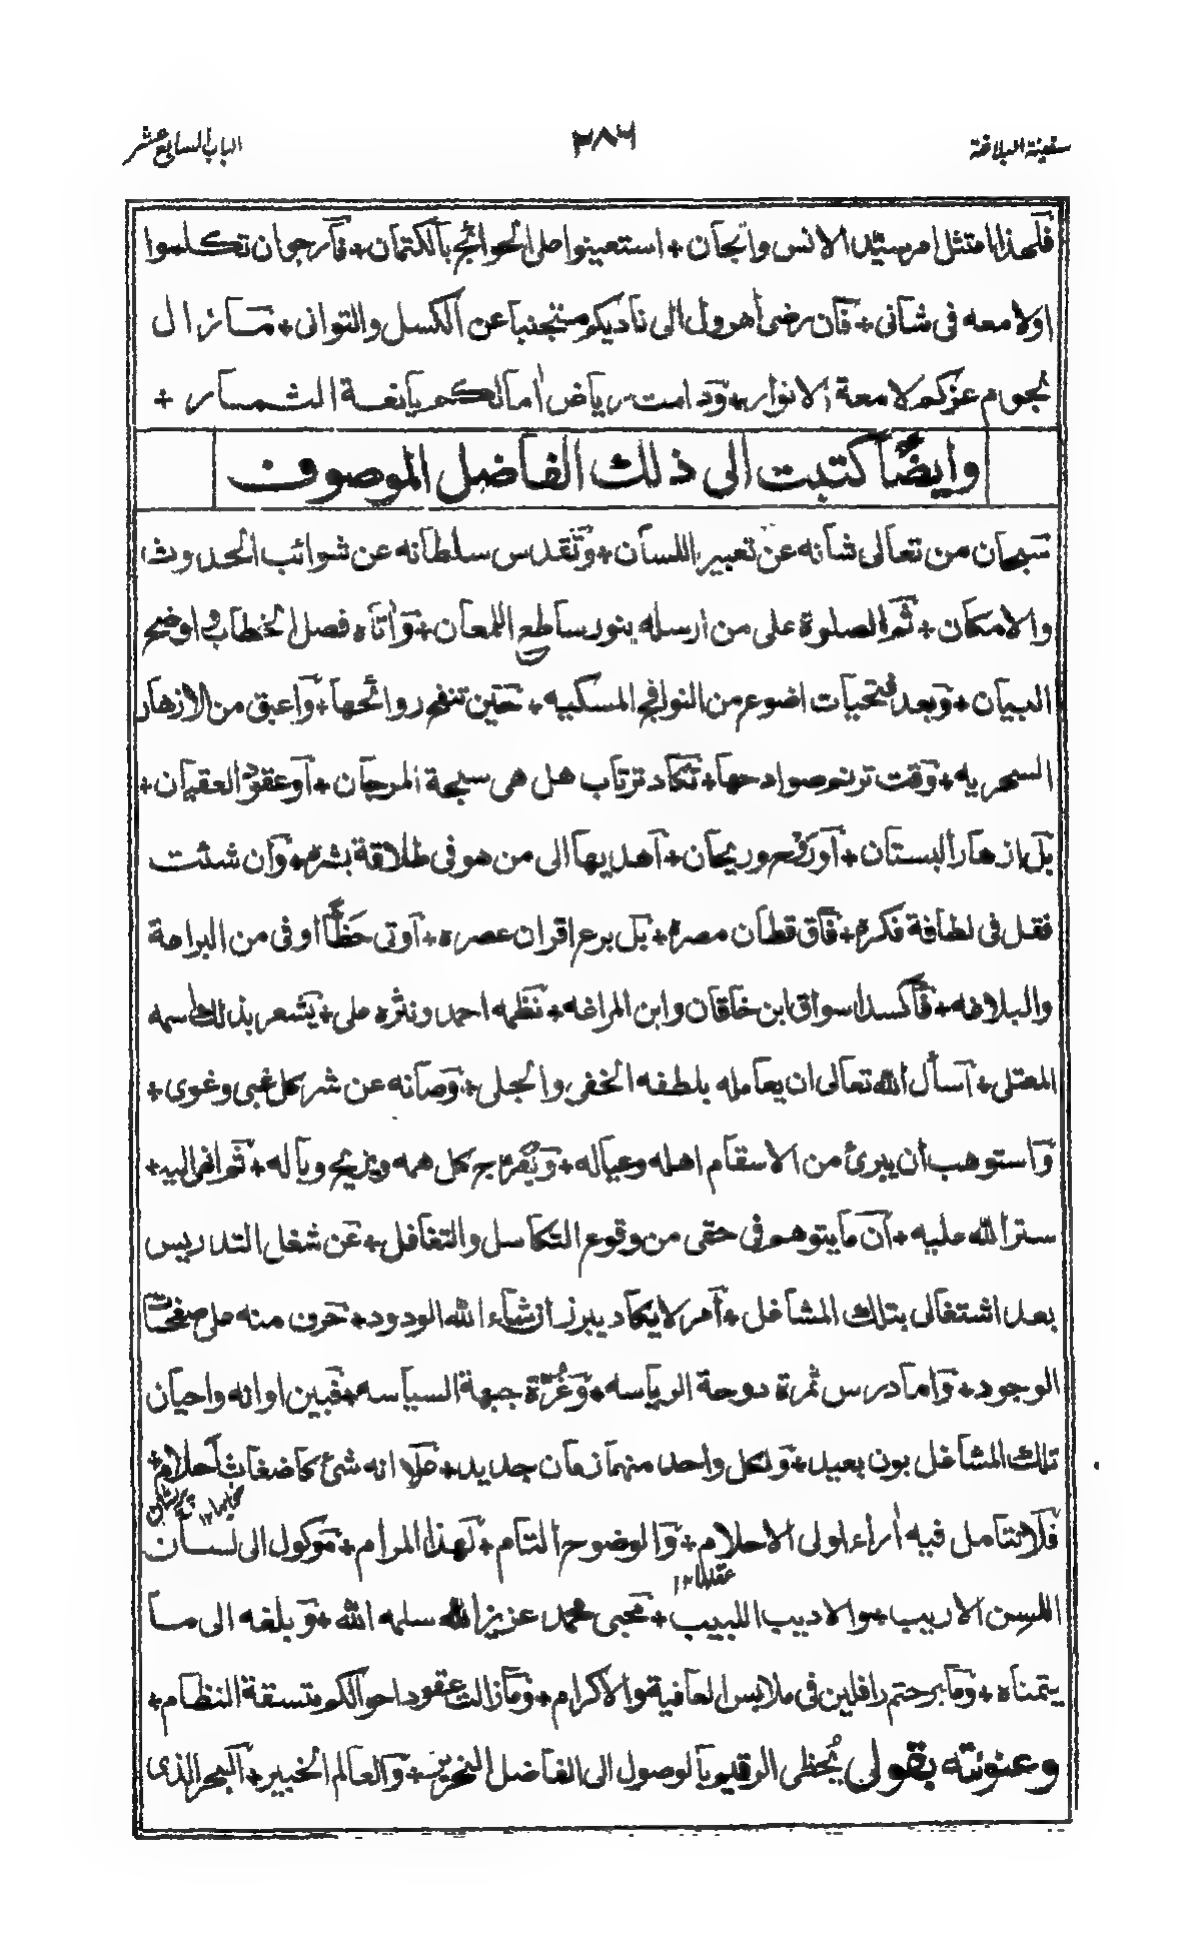 سفينة البلاغة ٢٨٦ الباب السابع عشر
فلهذا امتثل امر سيد الانس والجان + استعينوا على الحوائج بالكتمان + فارجوان تكلموا
اولا معه في شاني + فان رضى اهرول الى ناديكم متجنبا عن الكسل والتواني + مازال
نجوم عزكم لامعة الانوار + ودامت رياض امالكم يانعة الثمار +
وايضًا كتبت الى ذلك الفاضل الموصوف
سبحان من تعالى شانه عن تعبير اللسان + وتقدس سلطانه عن شوائب الحدوث
والامكان + ثم الصلوة على من ارسله بنور ساطع اللمعان + واتاه فصل الخطاب واوضح
البيان + وبعد فتحيات اضوع من النوافح المسكيه + حين تنفح روائحها + واعبق من الازهار
السحريه + وقت ترنم صوادحها + تكاد ترتاب هل هي سبحة المرجان + او عقود العقيان +
بل ازهار البستان + او روح وريحان + اهديها الى من هو في طلاقة بشره + وان شئت
فقل في لطافة فكره + فاق قطان مصره + بل برع اقران عصره + اوتى حظًّا اوفى من البراعة
والبلاغه + فاكسد اسواق ابن خاقان وابن المراغه + نظمه احمد ونثره على + يشعر بذلك اسمه
المعتلى + اسأل الله تعالى ان يعامله بلطفه الخفى والجلى + وصانه عن شر كل غبى وغوى +
واستوهب ان يبرئ من الاسقام اهله وعياله + ويفرج كل همه ويزيح وباله + ثم انهى اليه +
ستر الله عليه + ان مايتوهم في حقى من وقوع التكاسل والتغافل + عن شغل التدريس
بعد اشتغالى بتلك المشاغل + امر لايكاد يبرز ان شاء الله الودود + حرف منه على صفحات
الوجود + واما درس ثمرة دوحة الرياسه + وغُرّة جبهة السياسه + فبين اوانه واحيان
تلك المشاغل بون بعيد + ولكل واحد منهما زمان جديد + علا انه شئ كاضغاث احلام +
فلا تتامل فيه اراء اولى الاحلام + والوضوح التام + لهذا المرام + موكول الى لسان
عقلها ١٢
اللسِن الاريب + والاديب اللبيب + محبى محمد عزيز الله سلمه الله + وبلغه الى ما
يتمناه + وما برحتم رافلين في ملابس العافية والاكرام + ومازالت عقود احوالكم متسقة النظام +
وعنونته بقولى يُحظى الرقيم بالوصول الى الفاضل النحرير + والعالم الخبير + البحر الذى